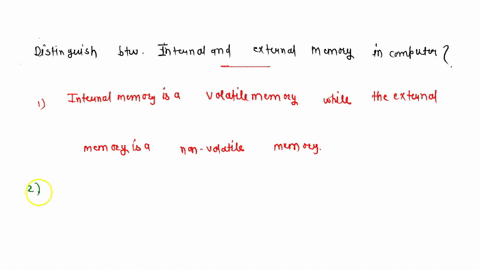 Distinguish btw. Internal and external memory in computer?
1) Internal memory is a volatile memory while the external
memory is a non-volatile memory.
2)